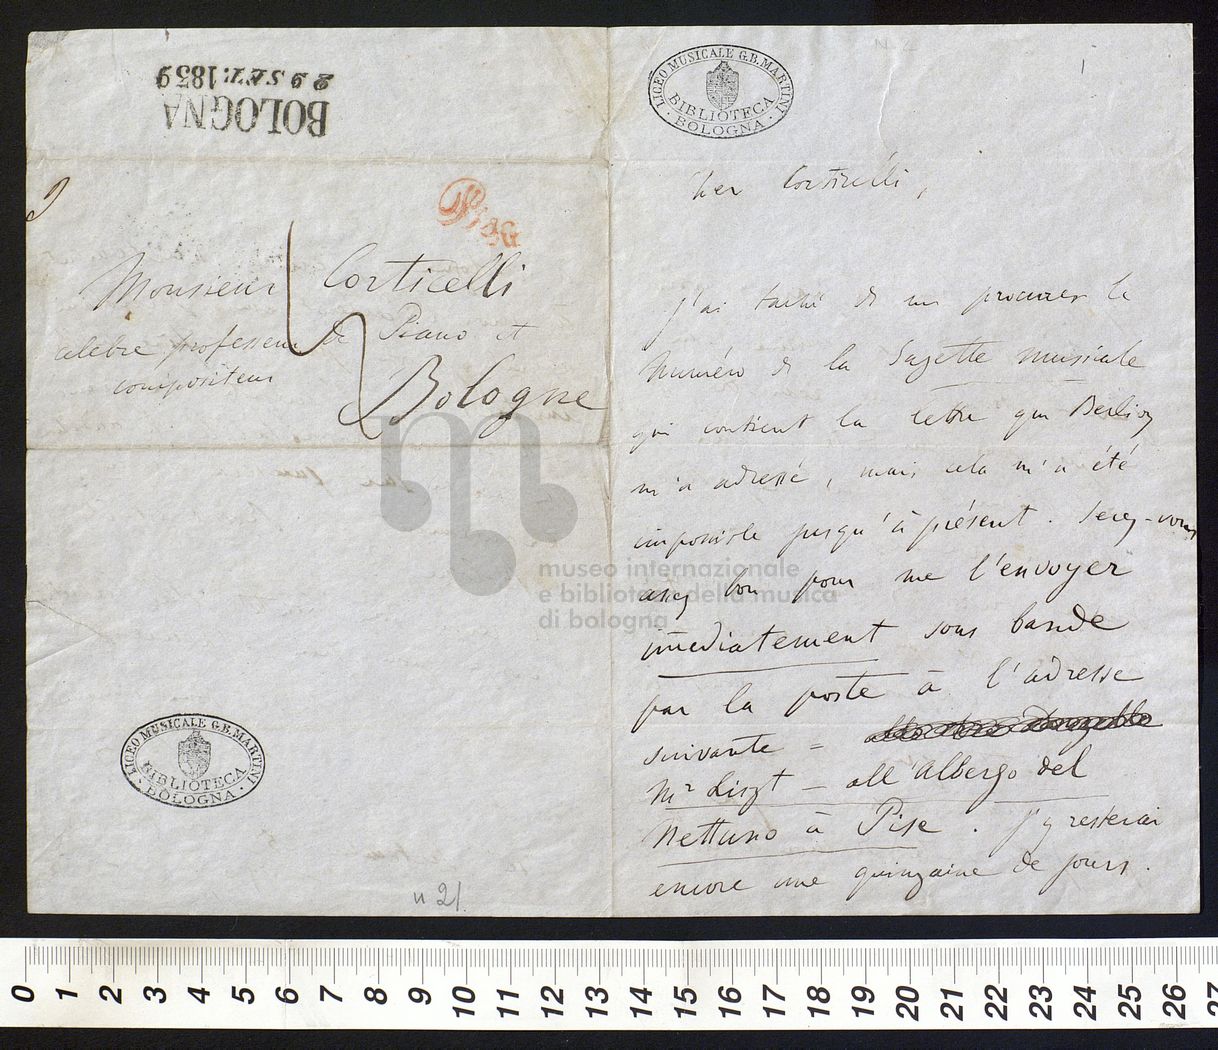 BOLOGNA
29 SET. 1839
Pisa
Monsieur Corticelli
celebre professeur de Piano et
compositeur
Bologne
LICEO MUSICALE G.B. MARTINI
BIBLIOTECA
BOLOGNA
n 21
LICEO MUSICALE G.B. MARTINI
BIBLIOTECA
BOLOGNA
1
Cher Corticelli,
j'ai taché de me procurer le
Numéro de la Gazette musicale
qui contient la lettre que Berlioz
m'a adressé, mais cela m'a été
impossible jusqu'à présent. Serez-vous
assez bon pour me l'envoyer
immédiatement sous bande
par la poste à l'adresse
suivante =
Mr Liszt – all'Albergo del
Nettuno à Pise. J'y resterai
encore une quinzaine de jours.
museo internazionale
e biblioteca della musica
di bologna
0 1 2 3 4 5 6 7 8 9 10 11 12 13 14 15 16 17 18 19 20 21 22 23 24 25 26 27